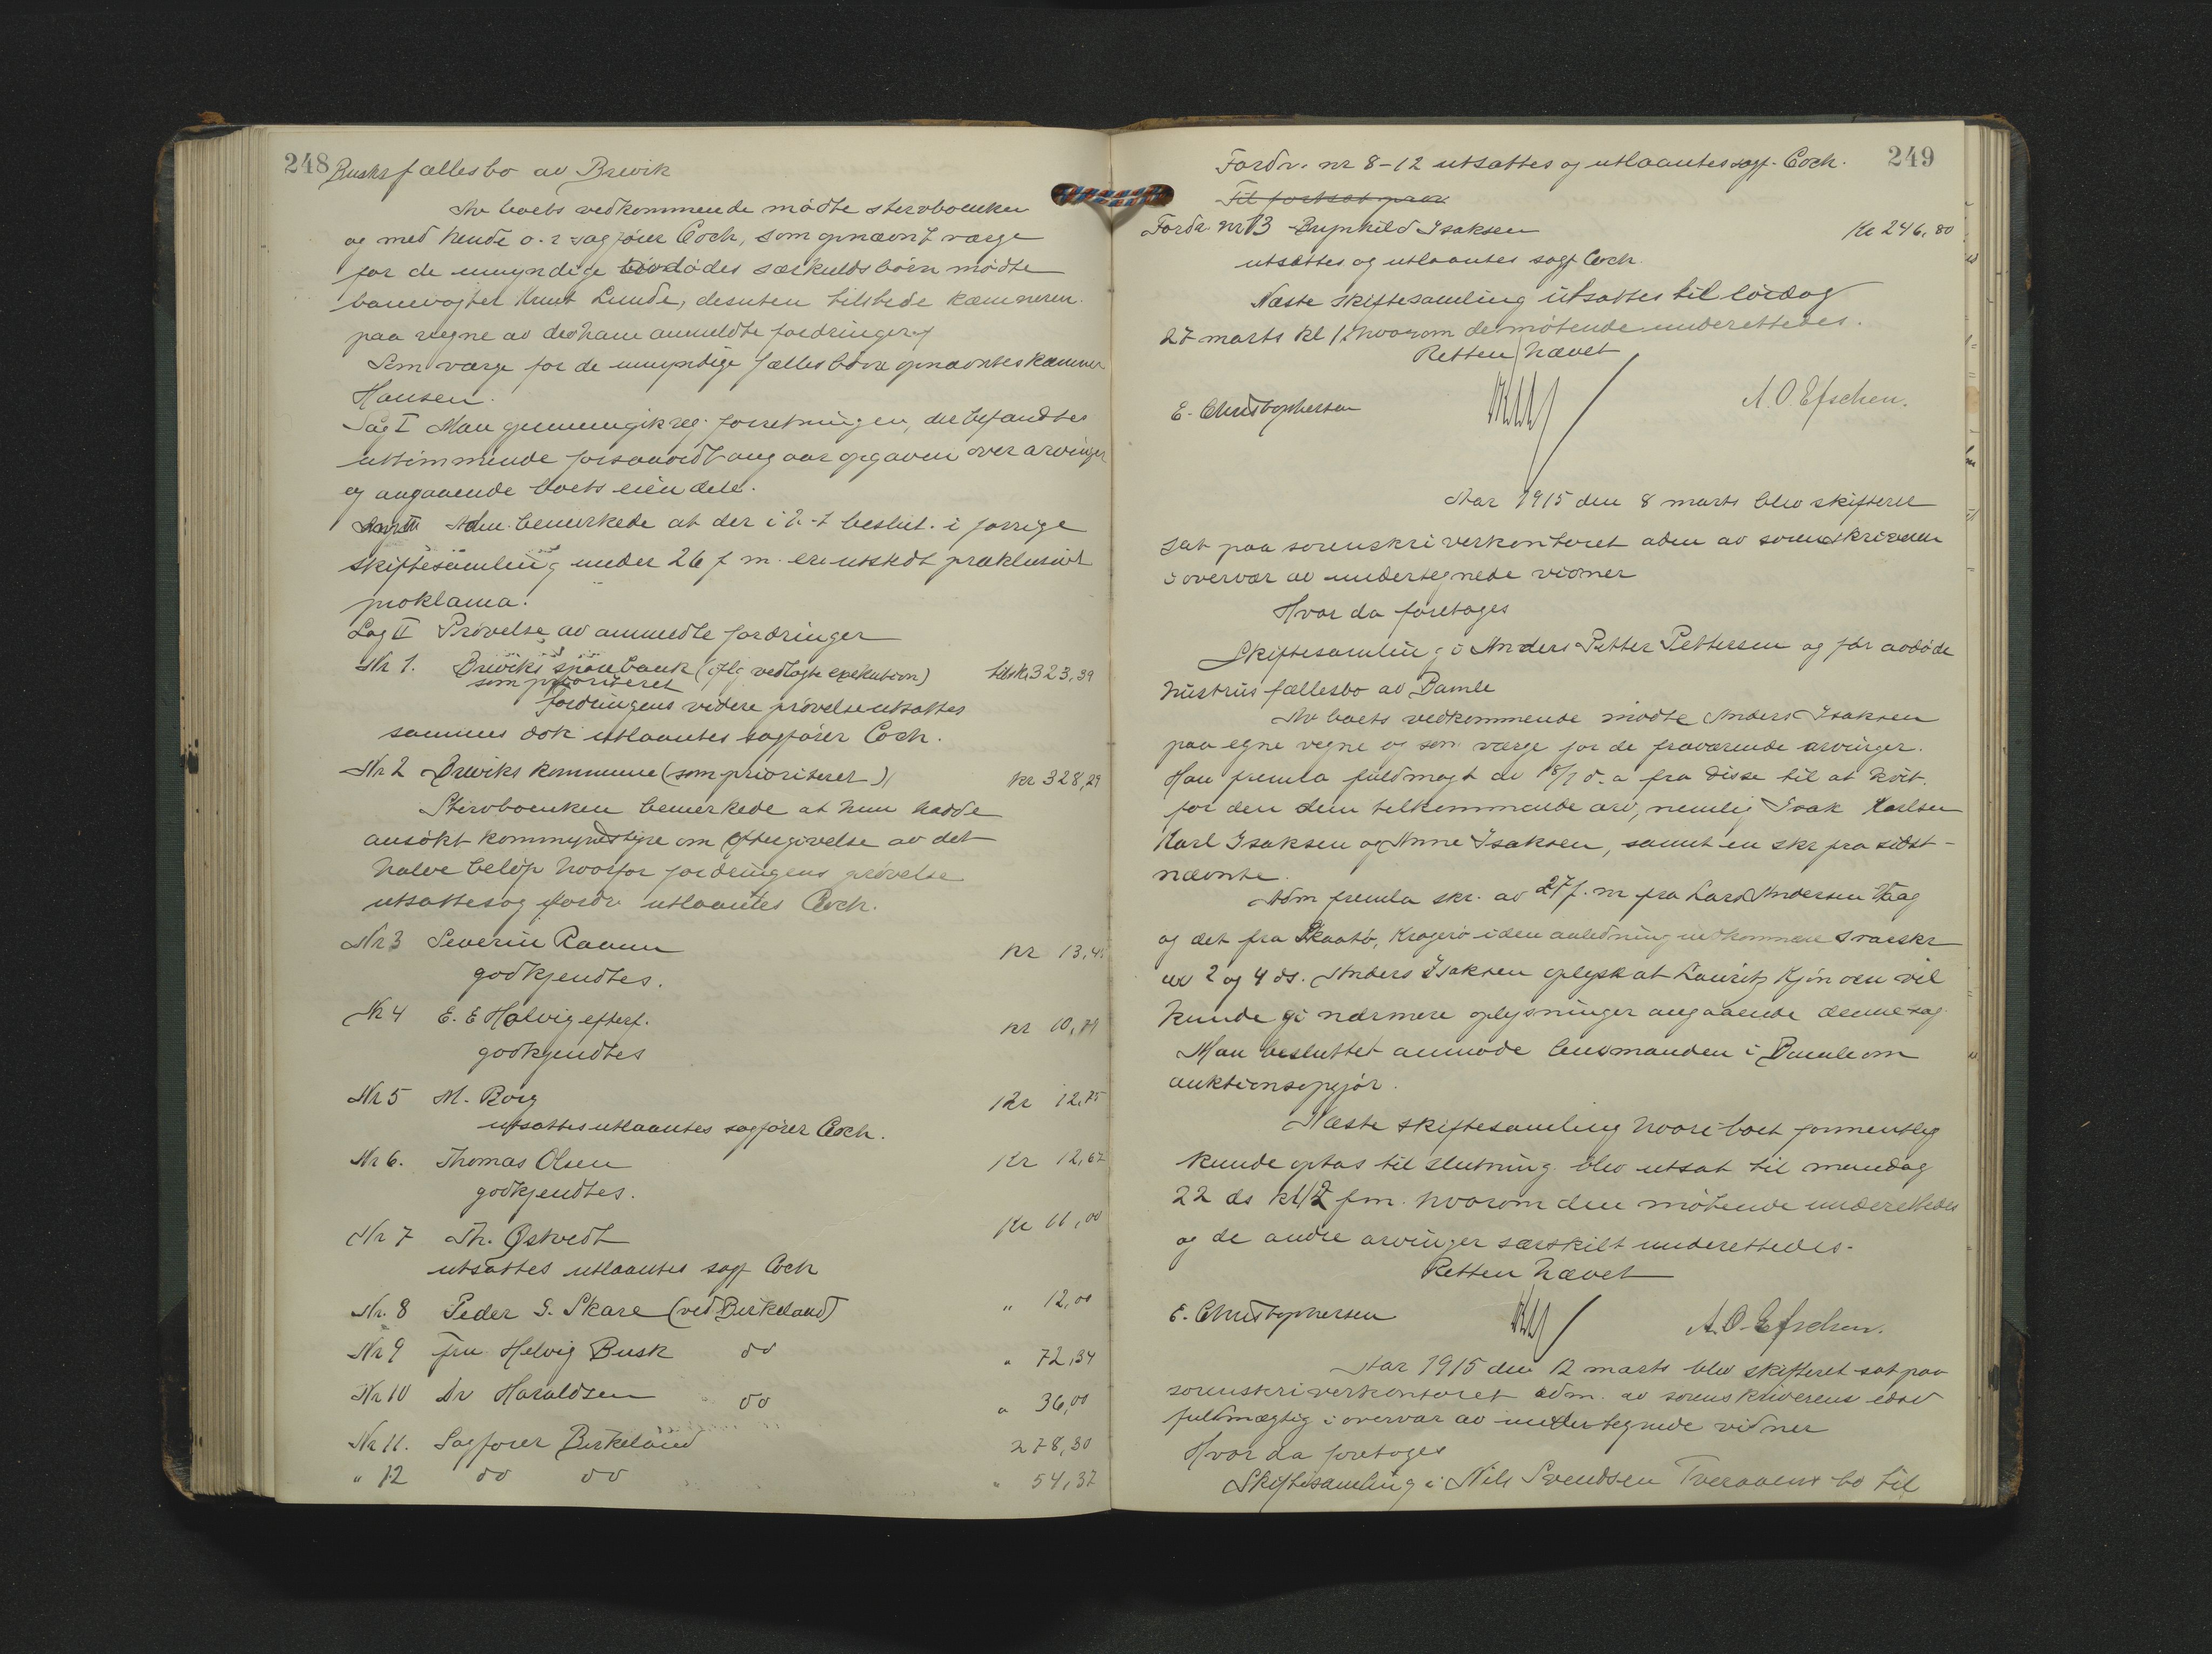 248
Busks fællesbo av Brevik
Av boets vedkommende mødte stervboenken
og med hende o.r sagfører Coch, som opnævnt værge
for de umyndige avdødes særkuldsbörn mødte
banevogter Knut Lunde, desuten tilstede kæmneren
paa vegne av de anmeldte fordringer
Som værge for de umyndige fællesbörn opnævntes kæmner
Hansen.
Lag I Man gjennemgik reg. forretningen, der befandtes
utstimmende forsaavidt angaar opgaven over arvinger
og angaaende boets eiendele.
Adm. bemerkede at der i h.t beslut. i forrige
skiftesamling under 26 f m. er utstedt præklusivt
proklama.
Lag II Prøvelse av anmeldte fordringer
Nr 1. Breviks sparebank (iflg vedlagte exekution) 323,39
som prioriteret
fordringens videre prøvelse utsattes
sammes dok utlaantes sagfører Coch.
Nr 2 Breviks kommune (som prioriteret) kr 328,29
Stervboenken bemerkede at hun hadde
ansøkt kommunestyre om eftergivelse av det
halve beløp hvorfor fordringens prøvelse
utsattes og fordr. utlaantes Coch.
Nr 3 Severin Raaum kr 13,45
godkjendtes.
Nr 4 E. E Holvig efterf. kr 10,79
godkjendtes
Nr 5 M. Borg Kr 12,75
utsattes utlaantes sagfører Coch.
Nr 6. Thomas Olsen Kr 12,67
godkjendtes.
Nr 7 Th. Østvedt Kr 11,00
utsattes utlaantes sagf Coch
Nr. 8 Peder G. Skare (ved Birkeland) " 12,00
Nr 9 fru Helvig Busk do " 72,34
Nr 10 Dr Haraldsen do " 36,00
Nr 11. Sagfører Birkeland 278,30
" 12 do do " 54,37
249
Fordr. nr 8-12 utsattes og utlaantes sagf. Coch.
Til fortsat prøv
Fordr. nr 13 Brynhild Isaksen Kr 246,80
utsattes og utlaantes sagf Coch.
Næste skiftesamling utsattes til lördag
27 marts kl 12 hvorom de møtende underettedes.
Retten hævet
E. Christophersen A. O. Efschen.
Aar 1915 den 8 marts blev skifteret
sat paa sorenskriverkontoret adm av sorenskriveren
i overvær av undertegnede vidner
Hvor da foretoges
Skiftesamling i Anders Petter Pettersen og før avdøde
hustrus fællesbo av Bamle
Av boets vedkommende mødte Anders Isaksen
paa egne vegne og som værge for de fraværende arvinger.
Han fremla fuldmagt av 18/1 d. a fra disse til at kvit.
for den dem tilkommende arv, nemlig Isak Karlsen
Karl Isaksen og Anne Isaksen, samt en skr fra sidst-
nævnte.
Adm fremla skr. av 27 f. m fra Lars Andersen Haag
og det fra Skaatø, Kragerø i den anledning indkommen svarskr
av 2 og 4 ds. Anders Isaksen oplyst at Lauritz Kjønøen vil
kunde gi nærmere oplysninger angaaende denne sag.
Man besluttet anmode lensmanden i Bamle om
auktionsopgjør.
Næste skiftesamling hvori boet formentlig
kunde optas til slutning blev utsat til mandag
22 ds kl 12 fm. hvorom den møtende underettedes
og de andre arvinger særskilt underettedes.
Retten hævet
E. Christophersen A. O. Efschen.
Aar 1915 den 12 marts blev skifteret sat paa
sorenskriverkontoret adm. av sorenskriverens edsv
fuldmægtig i overvær av undertegnede vidner
Hvor da foretoges
Skiftesamling i Nils Svendsen Tveraaens bo til